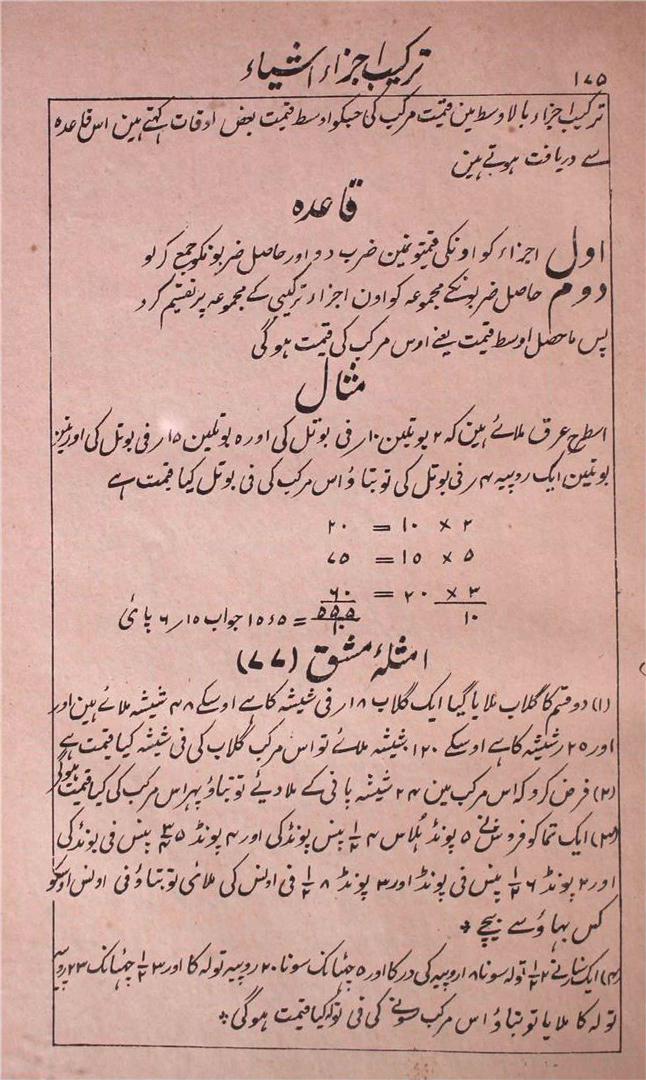 ۱۷۵
ترکیب اجزاء اشیاء
ترکیب اجزاء بالاوسط مین قیمت مرکب کی جسکو اوسط قیمت بعض اوقات کہتے ہین اس قاعدہ
سے دریافت ہوتے ہین
قاعدہ
اول اجزاء کو اونکی قیمتونمین ضرب دو اور حاصل ضربونکو جمع کر لو
دوم حاصل ضربونکے مجموعہ کو اون اجزاء ترکیبی کے مجموعہ پر تقسیم کر د
پس ماحصل اوسط قیمت یعنے اوس مرکب کی قیمت ہو گی
مثال
اسطرح عرق ملائے ہین کہ ۲ بوتلین ۱۰؍ فی بوتل کی اور ۵ بوتلین ۱۵؍ فی بوتل کی اور تین
بوتلین ایک روپیہ ۴؍ فی بوتل کی تو بتاؤ اس مرکب کی فی بوتل کیا قیمت ہے
۲ × ۱۰ = ۲۰
۵ × ۱۵ = ۷۵
۳ × ۲۰ = ۶۰
۱۰ ۱۵۵/۱۰ = ۱۵ء۵ جواب ۱۵؍ ۶ پائی
امثلہٴ مشق (۷۷)
(۱) دو قسم کا گلاب ملایا گیا ایک گلاب ۱۸؍ فی شیشہ کا ہے اوسکے ۴۸ شیشہ ملائے ہین اور
اور ۲۵؍ شیشہ کا ہے اوسکے ۱۲۰ شیشہ ملائے تو اس مرکب گلاب کی فی شیشہ کیا قیمت ہے
(۲) فرض کرو کہ اس مرکب مین ۲۴ شیشہ پانی کے ملا دیئے تو بتاؤ پھر اس مرکب کی کیا قیمت ہوگی
(۳) ایک تماکو فروش نے ۵ پونڈ ہُلاس ۴ ۱/۲ پنس پونڈ کی اور ۴ پونڈ ۵ ۳/۴ پنس فی پونڈ کی
اور ۲ پونڈ ۶ ۱/۲ پنس فی پونڈ اور ۳ پونڈ ۸ ۱/۲ فی اونس کی ملائی تو بتاؤ فی اونس اوسکو
کس بہاؤ سے بیچے
(۴) ایک سنار نے ۲ ۱/۲ تولہ سونا ۱۸ روپیہ کی در کا اور ۵ چہٹانک سونا ۲۰ روپیہ تولہ کا اور ۳ ۱/۲ چہٹانک ۲۳ روپیہ
تولہ کا ملایا تو بتاؤ اس مرکب سونے کی فی تولہ کیا قیمت ہوگی